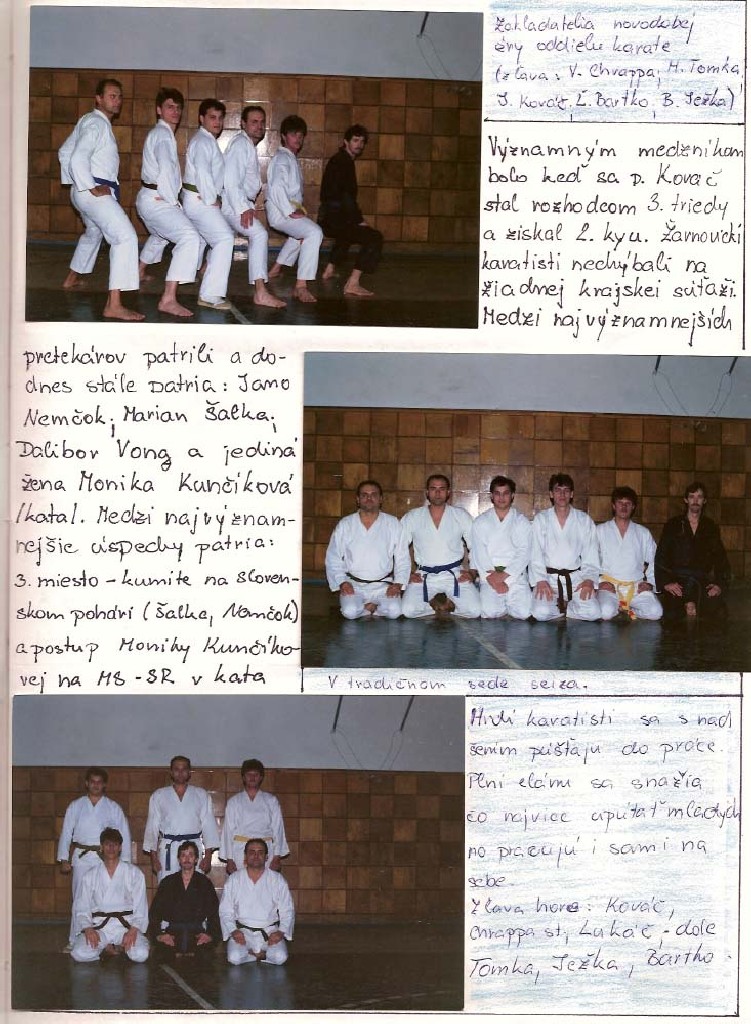 Zakladatelia novodobej
éry oddielu karate
(zľava: V. Chrappa, M. Tomka,
J. Kováč, Ľ. Bartko, B. Ježka)
Významným medzníkom
bolo keď sa p. Kováč
stal rozhodcom 3. triedy
a získal 2. kyu. Žarnovickí
karatisti nechýbali na
žiadnej krajskej súťaži.
Medzi najvýznamnejších
pretekárov patrili a do-
dnes stále patria: Jano
Nemčok, Marian Šalka,
Dalibor Vong a jediná
žena Monika Kunčíková
/kata/. Medzi najvýznam-
nejšie úspechy patria:
3. miesto - kumite na Sloven-
skom pohári (Šalka, Nemčok)
a postup Moniky Kunčíko-
vej na MS-SR v kata
V tradičnom sede seiza.
karatisti sa s nad
šením púšťajú do práce.
Plní elánu sa snažia
čo najviac upútať mladých
no pracujú i sami na
sebe.
Zľava hore: Kováč,
Chrappa st, Lukáč, - dole
Tomka, Ježka, Bartko.